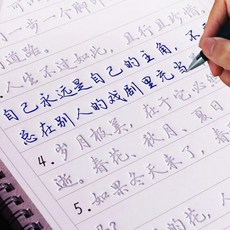 一步一个脚印
道路。
人生不过如此，且行且珍惜。
自己永远是自己的主角，不
总在别人的戏剧里充当
4. 岁月极美，在于它必
逝。春花、秋月、夏日
5. 如果冬天来了，春
的花，人